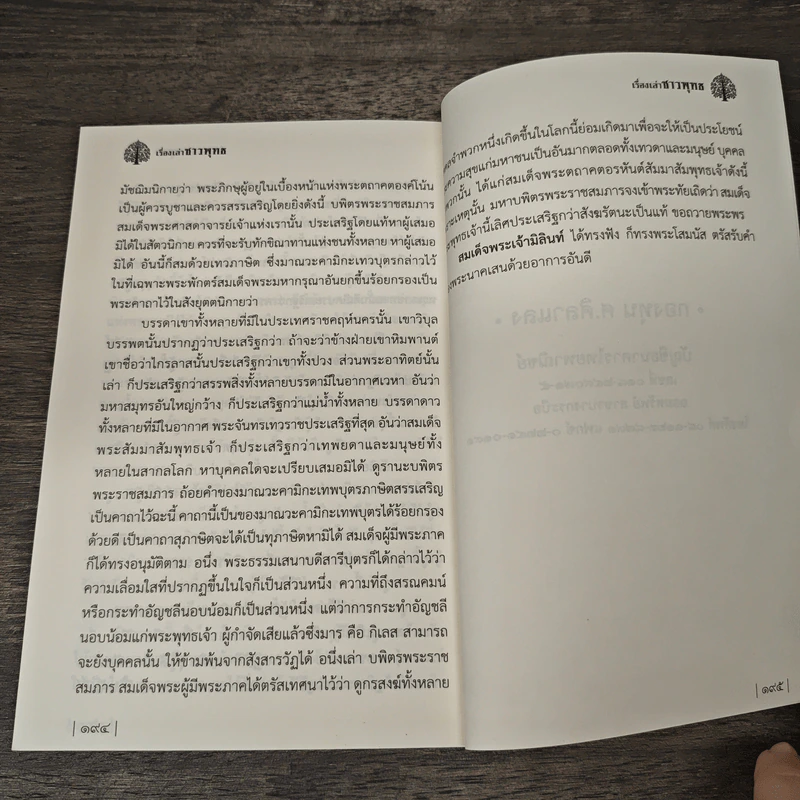 เรื่องเล่าชาวพุทธ
มัชฌิมนิกายว่า พระภิกษุผู้อยู่ในเบื้องหน้าแห่งพระตถาคตองค์โน้น
เป็นผู้ควรบูชาและควรสรรเสริญโดยยิ่งดังนี้ บพิตรพระราชสมภาร
สมเด็จพระศาสดาจารย์เจ้าแห่งเรานั้น ประเสริฐโดยแท้หาผู้เสมอ
มิได้ในสัตวนิกาย ควรที่จะรับทักขิณาทานแห่งชนทั้งหลาย หาผู้เสมอ
มิได้ อันนี้ก็สมด้วยเทวภาษิต ซึ่งมาณวะคามิกะเทวบุตรกล่าวไว้
ในที่เฉพาะพระพักตร์สมเด็จพระมหากรุณาอันยกขึ้นร้อยกรองเป็น
พระคาถาไว้ในสังยุตตนิกายว่า
บรรดาเขาทั้งหลายที่มีในประเทศราชคฤห์นครนั้น เขาวิบุล
บรรพตนั้นปรากฏว่าประเสริฐกว่า ถ้าจะว่าข้างฝ่ายเขาหิมพานต์
เขาชื่อว่าไกรลาสนั้นประเสริฐกว่าเขาทั้งปวง ส่วนพระอาทิตย์นั้น
เล่า ก็ประเสริฐกว่าสรรพสิ่งทั้งหลายบรรดามีในอากาศเวหา อันว่า
มหาสมุทรอันใหญ่กว้าง ก็ประเสริฐกว่าแม่น้ำทั้งหลาย บรรดาดาว
ทั้งหลายที่มีในอากาศ พระจันทรเทวราชประเสริฐที่สุด อันว่าสมเด็จ
พระสัมมาสัมพุทธเจ้า ก็ประเสริฐกว่าเทพยดาและมนุษย์ทั้ง
หลายในสากลโลก หาบุคคลใดจะเปรียบเสมอมิได้ ดูรานะบพิตร
พระราชสมภาร ถ้อยคำของมาณวะคามิกะเทพบุตรภาษิตสรรเสริญ
เป็นคาถาไว้ฉะนี้ คาถานี้เป็นของมาณวะคามิกะเทพบุตรได้ร้อยกรอง
ด้วยดี เป็นคาถาสุภาษิตจะได้เป็นทุภาษิตหามิได้ สมเด็จผู้มีพระภาค
ก็ได้ทรงอนุมัติตาม อนึ่ง พระธรรมเสนาบดีสารีบุตรก็ได้กล่าวไว้ว่า
ความเลื่อมใสที่ปรากฏขึ้นในใจก็เป็นส่วนหนึ่ง ความที่ถึงสรณคมน์
หรือกระทำอัญชลีนอบน้อมก็เป็นส่วนหนึ่ง แต่ว่าการกระทำอัญชลี
นอบน้อมแก่พระพุทธเจ้า ผู้กำจัดเสียแล้วซึ่งมาร คือ กิเลส สามารถ
จะยังบุคคลนั้น ให้ข้ามพ้นจากสังสารวัฏได้ อนึ่งเล่า บพิตรพระราช
สมภาร สมเด็จพระผู้มีพระภาคได้ตรัสเทศนาไว้ว่า ดูกรสงฆ์ทั้งหลาย
| ๑๙๔ |
เรื่องเล่าชาวพุทธ
จำพวกหนึ่งเกิดขึ้นในโลกนี้ย่อมเกิดมาเพื่อจะให้เป็นประโยชน์
ความสุขแก่มหาชนเป็นอันมากตลอดทั้งเทวดาและมนุษย์ บุคคล
พวกนั้น ได้แก่สมเด็จพระตถาคตอรหันต์สัมมาสัมพุทธเจ้าดังนี้
เหตุนั้น มหาบพิตรพระราชสมภารจงเข้าพระทัยเถิดว่า สมเด็จ
พุทธเจ้านี้เลิศประเสริฐกว่าสังฆรัตนะเป็นแท้ ขอถวายพระพร
สมเด็จพระเจ้ามิลินท์ ได้ทรงฟัง ก็ทรงพระโสมนัส ตรัสรับคำ
พระนาคเสนด้วยอาการอันดี
| ๑๙๕ |